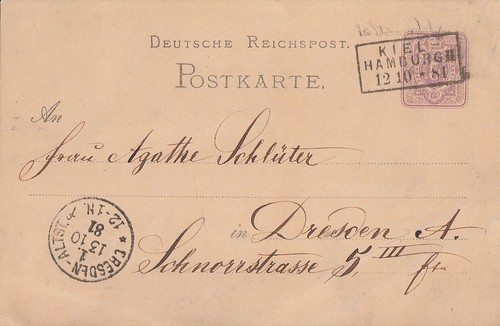 DEUTSCHE REICHSPOST.
POSTKARTE.
KIEL
HAMBURG II
12 10 * 81
An
Frau Agathe Schlüter
in Dresden A.
Schnorrstrasse 5, III
fr.
DRESDEN-ALTST.
1.
13 10
81
12-1N.